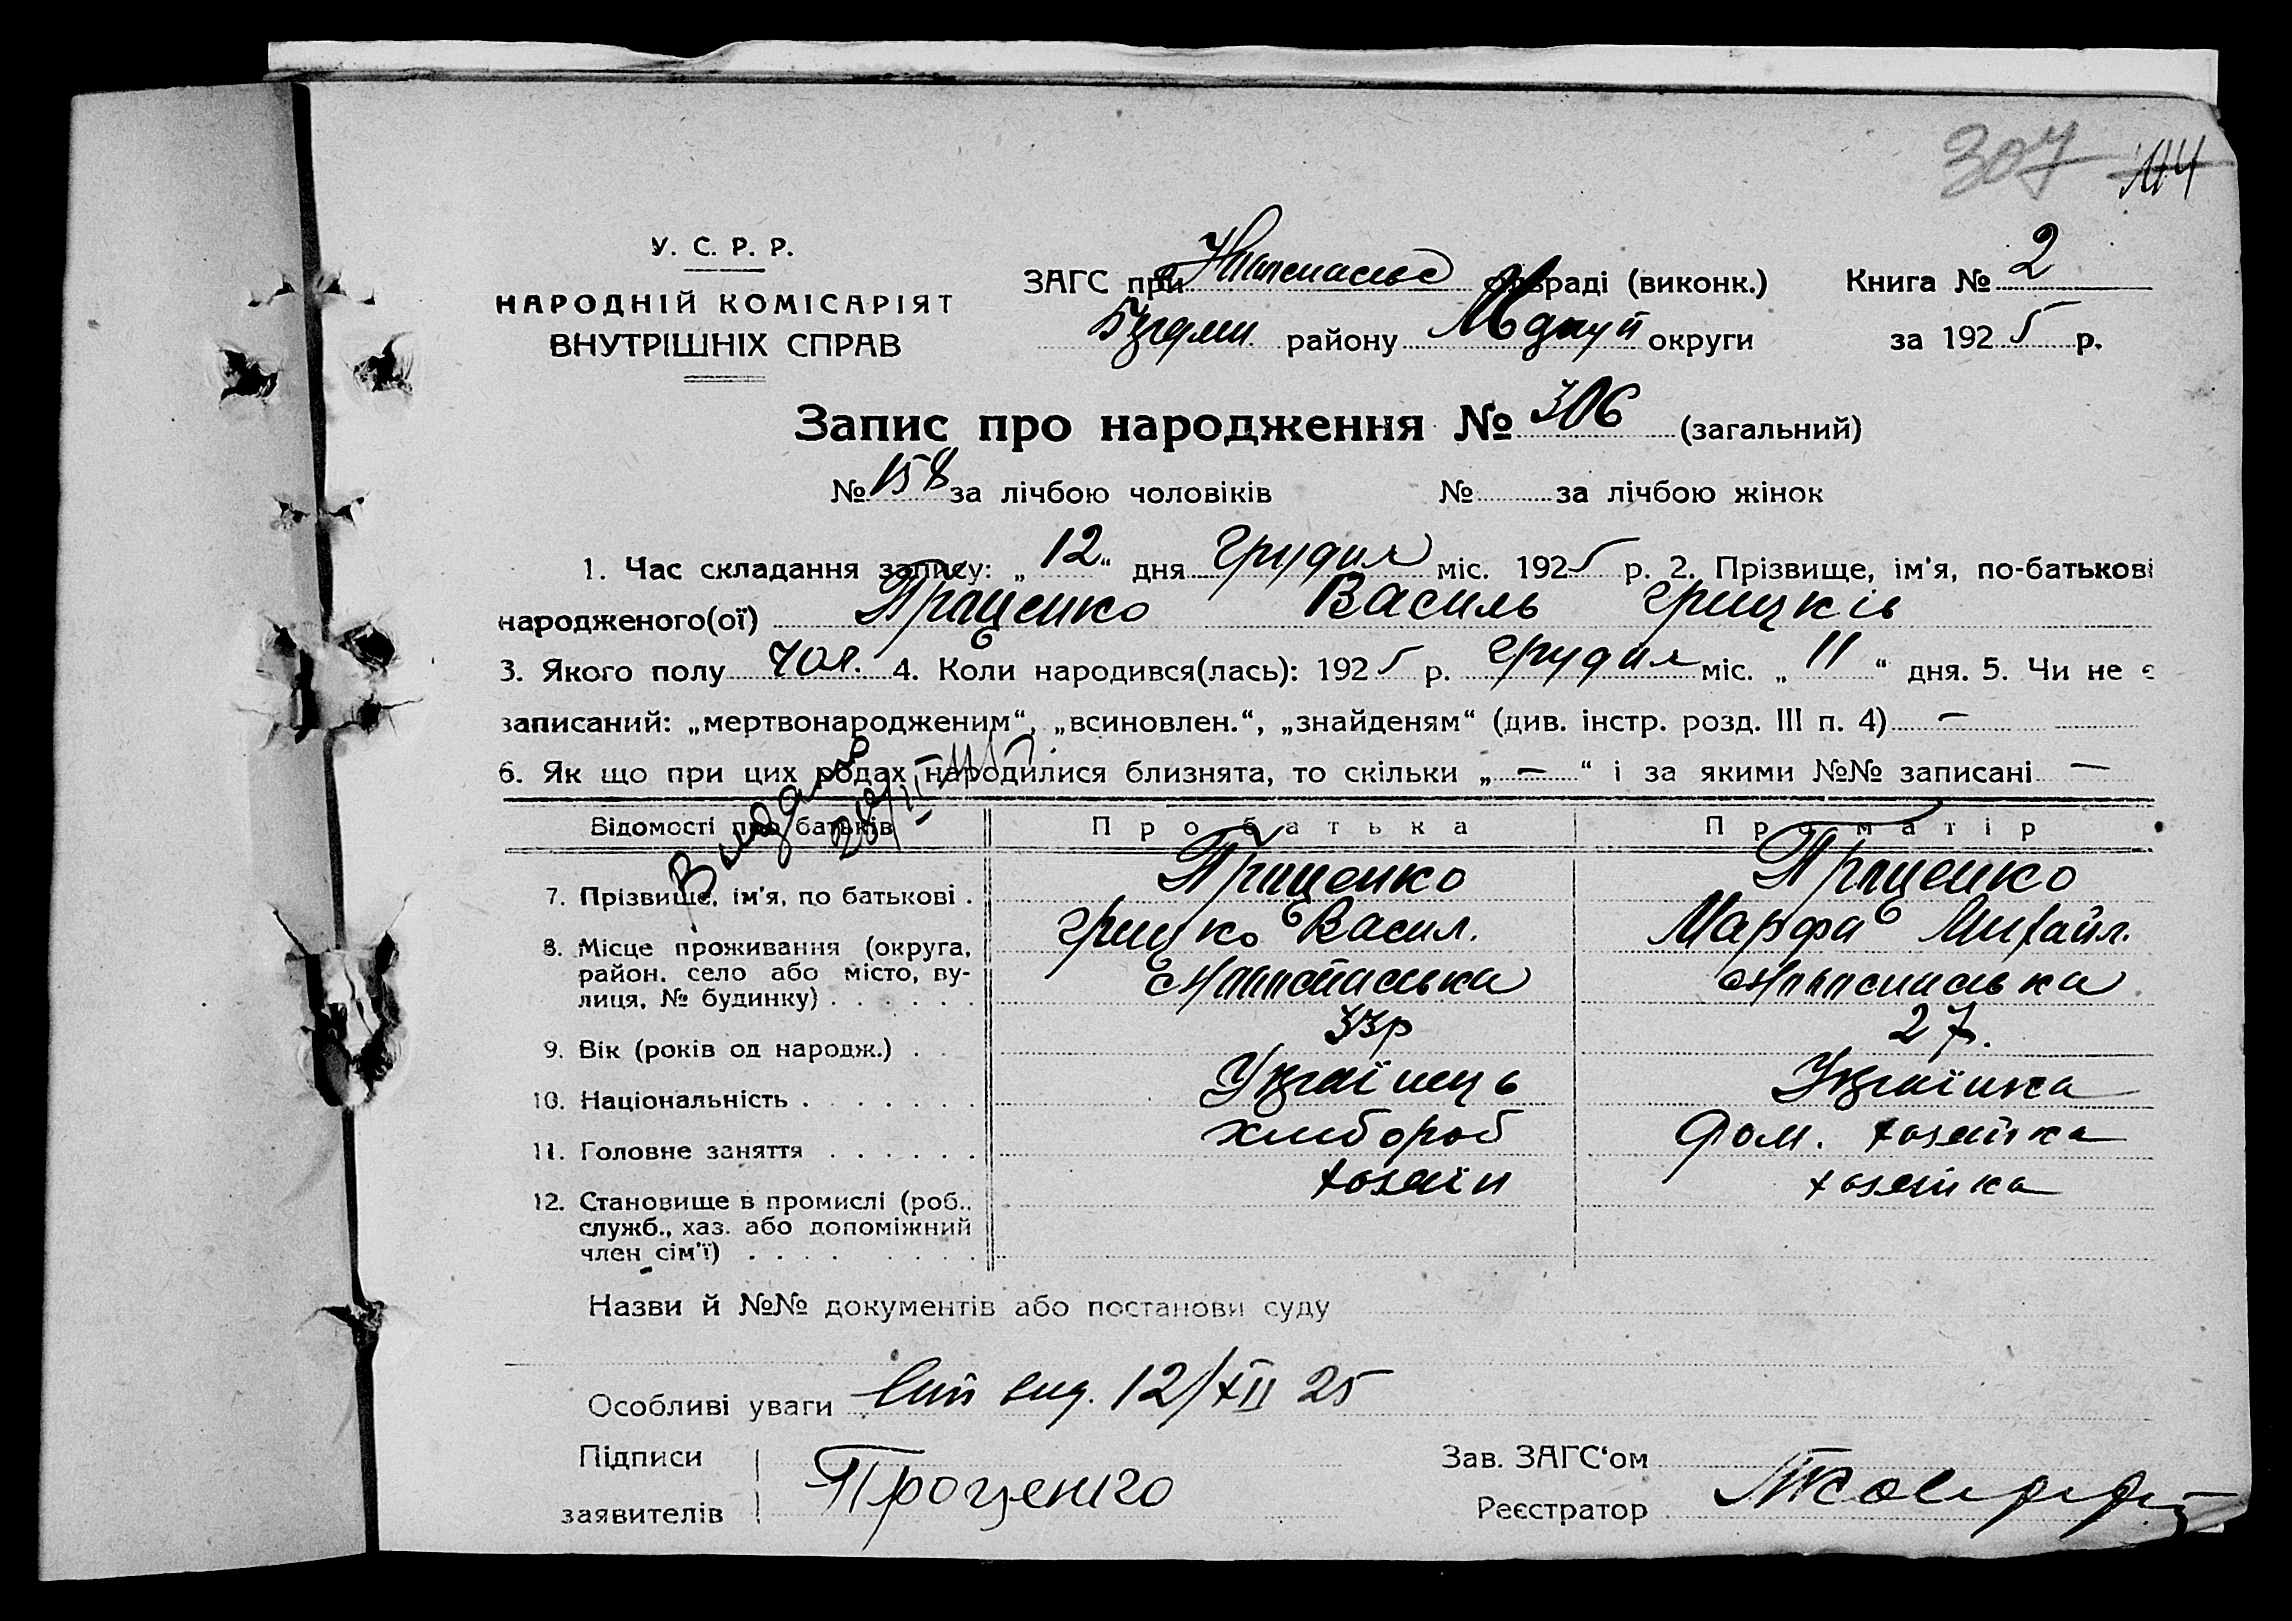 307 144
У. С. Р. Р.
НАРОДНІЙ КОМІСАРІЯТ
ВНУТРІШНІХ СПРАВ
ЗАГС при сільраді (виконк.) Книга № 2
району округи за 1925 р.
Запис про народження № 306 (загальний)
№ 158 за лічбою чоловіків № за лічбою жінок
1. Час складання запису: „12“ дня Грудня міс. 1925 р. 2. Прізвище, ім'я, по-батькові
народженого(ої) Проценко Василь Грицків
3. Якого полу чол. 4. Коли народився(лась): 1925 р. Грудня міс. „11“ дня. 5. Чи не є
записаний: „мертвонародженим“, „всиновлен.“, „знайденям“ (див. інстр. розд. III п. 4) —
6. Як що при цих родах народилися близнята, то скільки „—“ і за якими №№ записані —
Видано
Відомості про батьків Про батька Про матір
7. Прізвище, ім'я, по батькові . Проценко Проценко
Грицко Васил. Марфа Михайл.
8. Місце проживання (округа,
район, село або місто, ву-
лиця, № будинку) . . . . . .
9. Вік (років од народж.) . . 33р 27.
10. Національність . . . . . . . Українець Українка
11. Головне заняття . . . . . . хлибороб Дом. хозяйка
12. Становище в промислі (роб.. хозяїн хозяйка
служб., хаз. або допоміжний
член сім'ї) . . . . . . . .
Назви й №№ документів або постанови суду
Особливі уваги вид. 12/XII 25
Підписи
заявителів Проценко
Зав. ЗАГС‘ом
Реєстратор